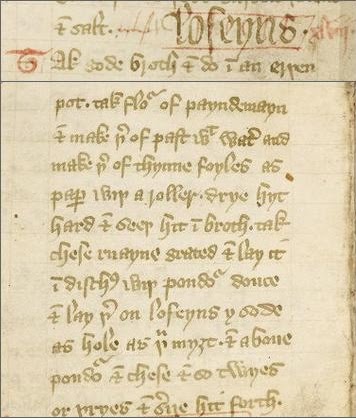 & salt. loseyns.
Tak gode broth & do ī an erþen
pot. tak floʳ of payndemayn
& make þᵉof past wᵗ watʳ and
make þᵉof thynne foyles as
papʳ wiþ a roller. drye hyt
hard & seeþ hit ī broth. tak
chese ruayne grated & lay it
ī dischᵉ wiþ poudoʳ douce
& lay þᵉon loseyns y sode
as hole as þᵘ myȝt. & aboue
poudoʳ & chese & so twyes
or þryes & sʳue hit forth.